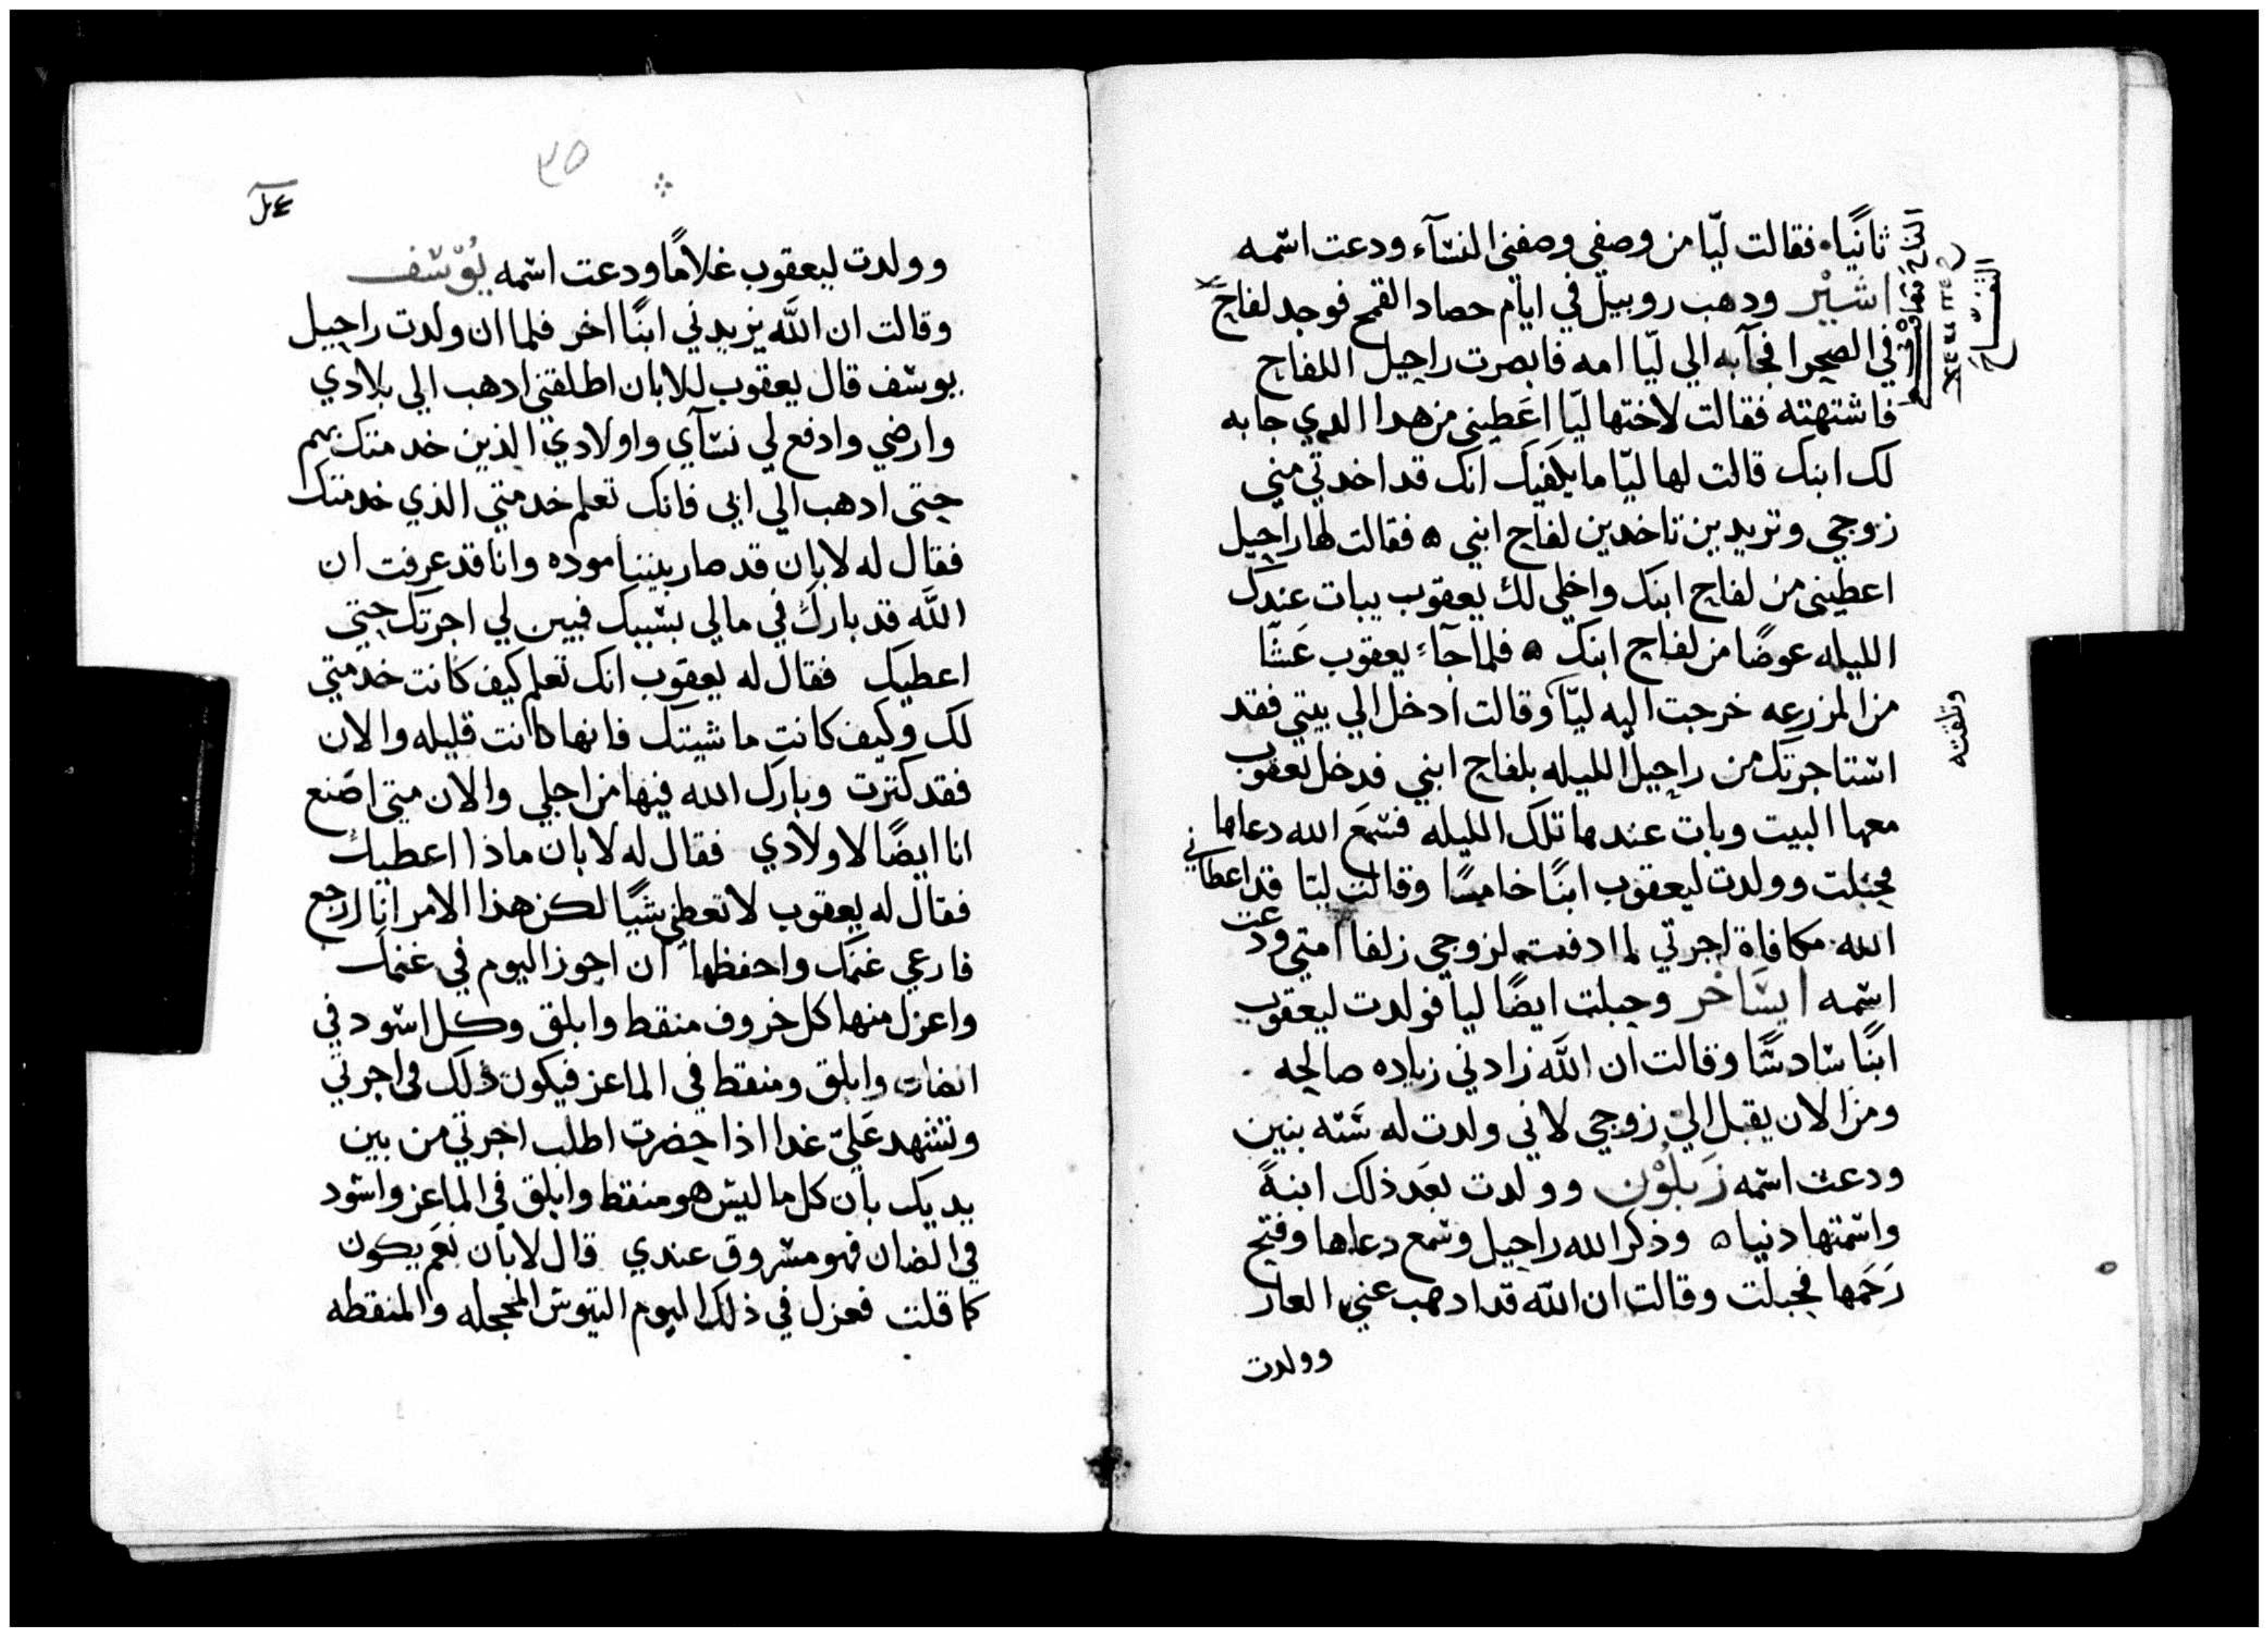 ثانيًا فقالت ليّا من وصفي وصفني النسآء ودعت اسمه
اشيْر ودهب روبيل في ايام حصاد القمح فوجد لفاح
في الصحرا فجآ به الي ليّا امه فابصرت راحيل اللفاح
فاشتهته فقالت لاختها ليّا اعَطيني من هدا الدي جا به
لك ابنك قالت لها ليّا ما يكفيك انك قد اخدتي مني
زوجي وتريدين تاخدين لفاح ابني ه فقالت لها راحيل
اعطيني من لفاح ابنك واخلي لك يعقوب يبات عندك
الليله عوضًا من لفاح ابنك ه فلما جآء يعقوب عَشّا
من المزرعه خرجت اليه ليّا وقالت ادخل الي بيتي فقد
وتلقته
استاجرتك من راحيل الليله بلفاح ابني فدخل يعقوب
معها البيت وبات عندها تلك الليله فسمَع الله دعاها
فحبلت وولدت ليعقوب ابنًا خامسًا وقالت ليّا قد اعطاني
الله مكافاة اجرتي لما ادفعت لزوجي زلفا امتي ودعت
اسمه ايسَاخر وحبلت ايضًا ليا فولدت ليعقوب
ابنًا سادسًا وقالت ان اللَّه زادني زياده صالحه
ومن الان يقبل اليّ زوجي لاني ولدت له سَته بنين
ودعت اسمه زَبلوْن وولدت بعَد ذلك ابنةً
واسمتها دنيا ه وذكر الله راحيل وسمع دعاها وفتح
رَحَمها فحبلت وقالت ان اللَّه قد ادهب عني العار
وولدت
٣٥
وولدت ليعقوب غلامًا ودعت اسمه يُوْسف
وقالت ان اللَّه يزيدني ابنًا اخر فلما ان ولدت راحيل
يوسف قال يعقوب للابان اطلقني ادهب الي بلادي
وارضي وادفع لي نسآي واولادي الذين خدمتك بهم
حتى ادهب الي ابي فانك تعلم خدمتي الذي خدمتك
فقال له لابان قد صار بيننا موده وانا قد عرفت ان
اللَّه قد بارك في مالي بسببك فبين لي اجرتك حتي
اعطيك فقال له يعقوب انك تعلم كيف كانت خدمتي
لك وكيف كانت ماشيتك فانها كانت قليله والان
فقد كترت وبارك الله فيها من اجلي والان متى اصَنع
انا ايضًا لاولادي فقال له لابان ماذا اعطيك
فقال له يعقوب لا تعطني شيًا لكن هذا الامر انا ارجع
فارعي غنمَك واحفظها ان اجوز اليوم في غنمك
واعزل منها كل خروف منقط وابلق وكل اسود في
الضان وابلق ومنقط في الماعز فيكون ذلك في اجرتي
وتشهد عَليّ غدا اذا حضرت اطلب اجرتي من بين
يديك بان كل ما ليس هو منقط وابلق في الماعز واسود
في الضان فهو مسروق عندي قال لابان نعَم يكون
كما قلت فعزل في ذلك اليوم التيوس المحجله والمنقطه